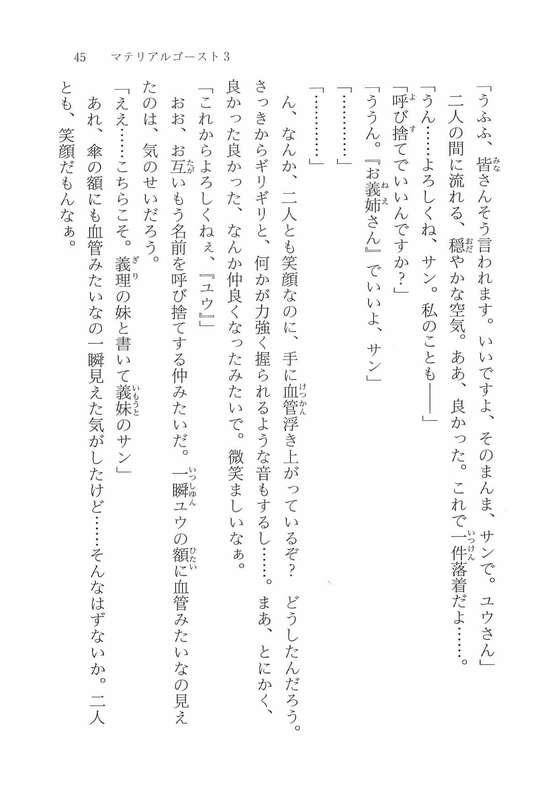 45　マテリアルゴースト3
「うふふ、皆さんそう言われます。いいですよ、そのまんま、サンで。ユウさん」
二人の間に流れる、穏やかな空気。ああ、良かった。これで一件落着だよ……。
「うん……よろしくね、サン。私のことも――」
「呼び捨てでいいんですか？」
「ううん。『お義姉さん』でいいよ、サン」
「…………」
「…………」
ん、なんか、二人とも笑顔なのに、手に血管浮き上がっているぞ？　どうしたんだろう。
さっきからギリギリと、何かが力強く握られるような音もするし……。まあ、とにかく、
良かった良かった、なんか仲良くなったみたいで。微笑ましいなぁ。
「これからよろしくねぇ、『ユウ』」
おお、お互いもう名前を呼び捨てする仲みたいだ。一瞬ユウの額に血管みたいなの見え
たのは、気のせいだろう。
「ええ……こちらこそ。義理の妹と書いて義妹のサン」
あれ、傘の額にも血管みたいなの一瞬見えた気がしたけど……そんなはずないか。二人
とも、笑顔だもんなぁ。